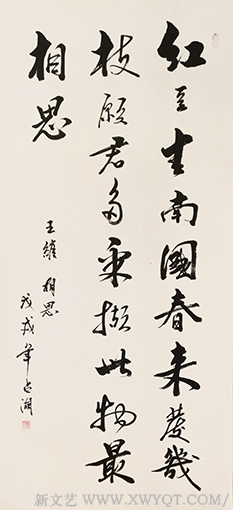 红豆生南國春来發幾
枝願君多采擷此物最
相思
王維 相思
戊戌年
新文艺 / WWW.XWYQT.COM